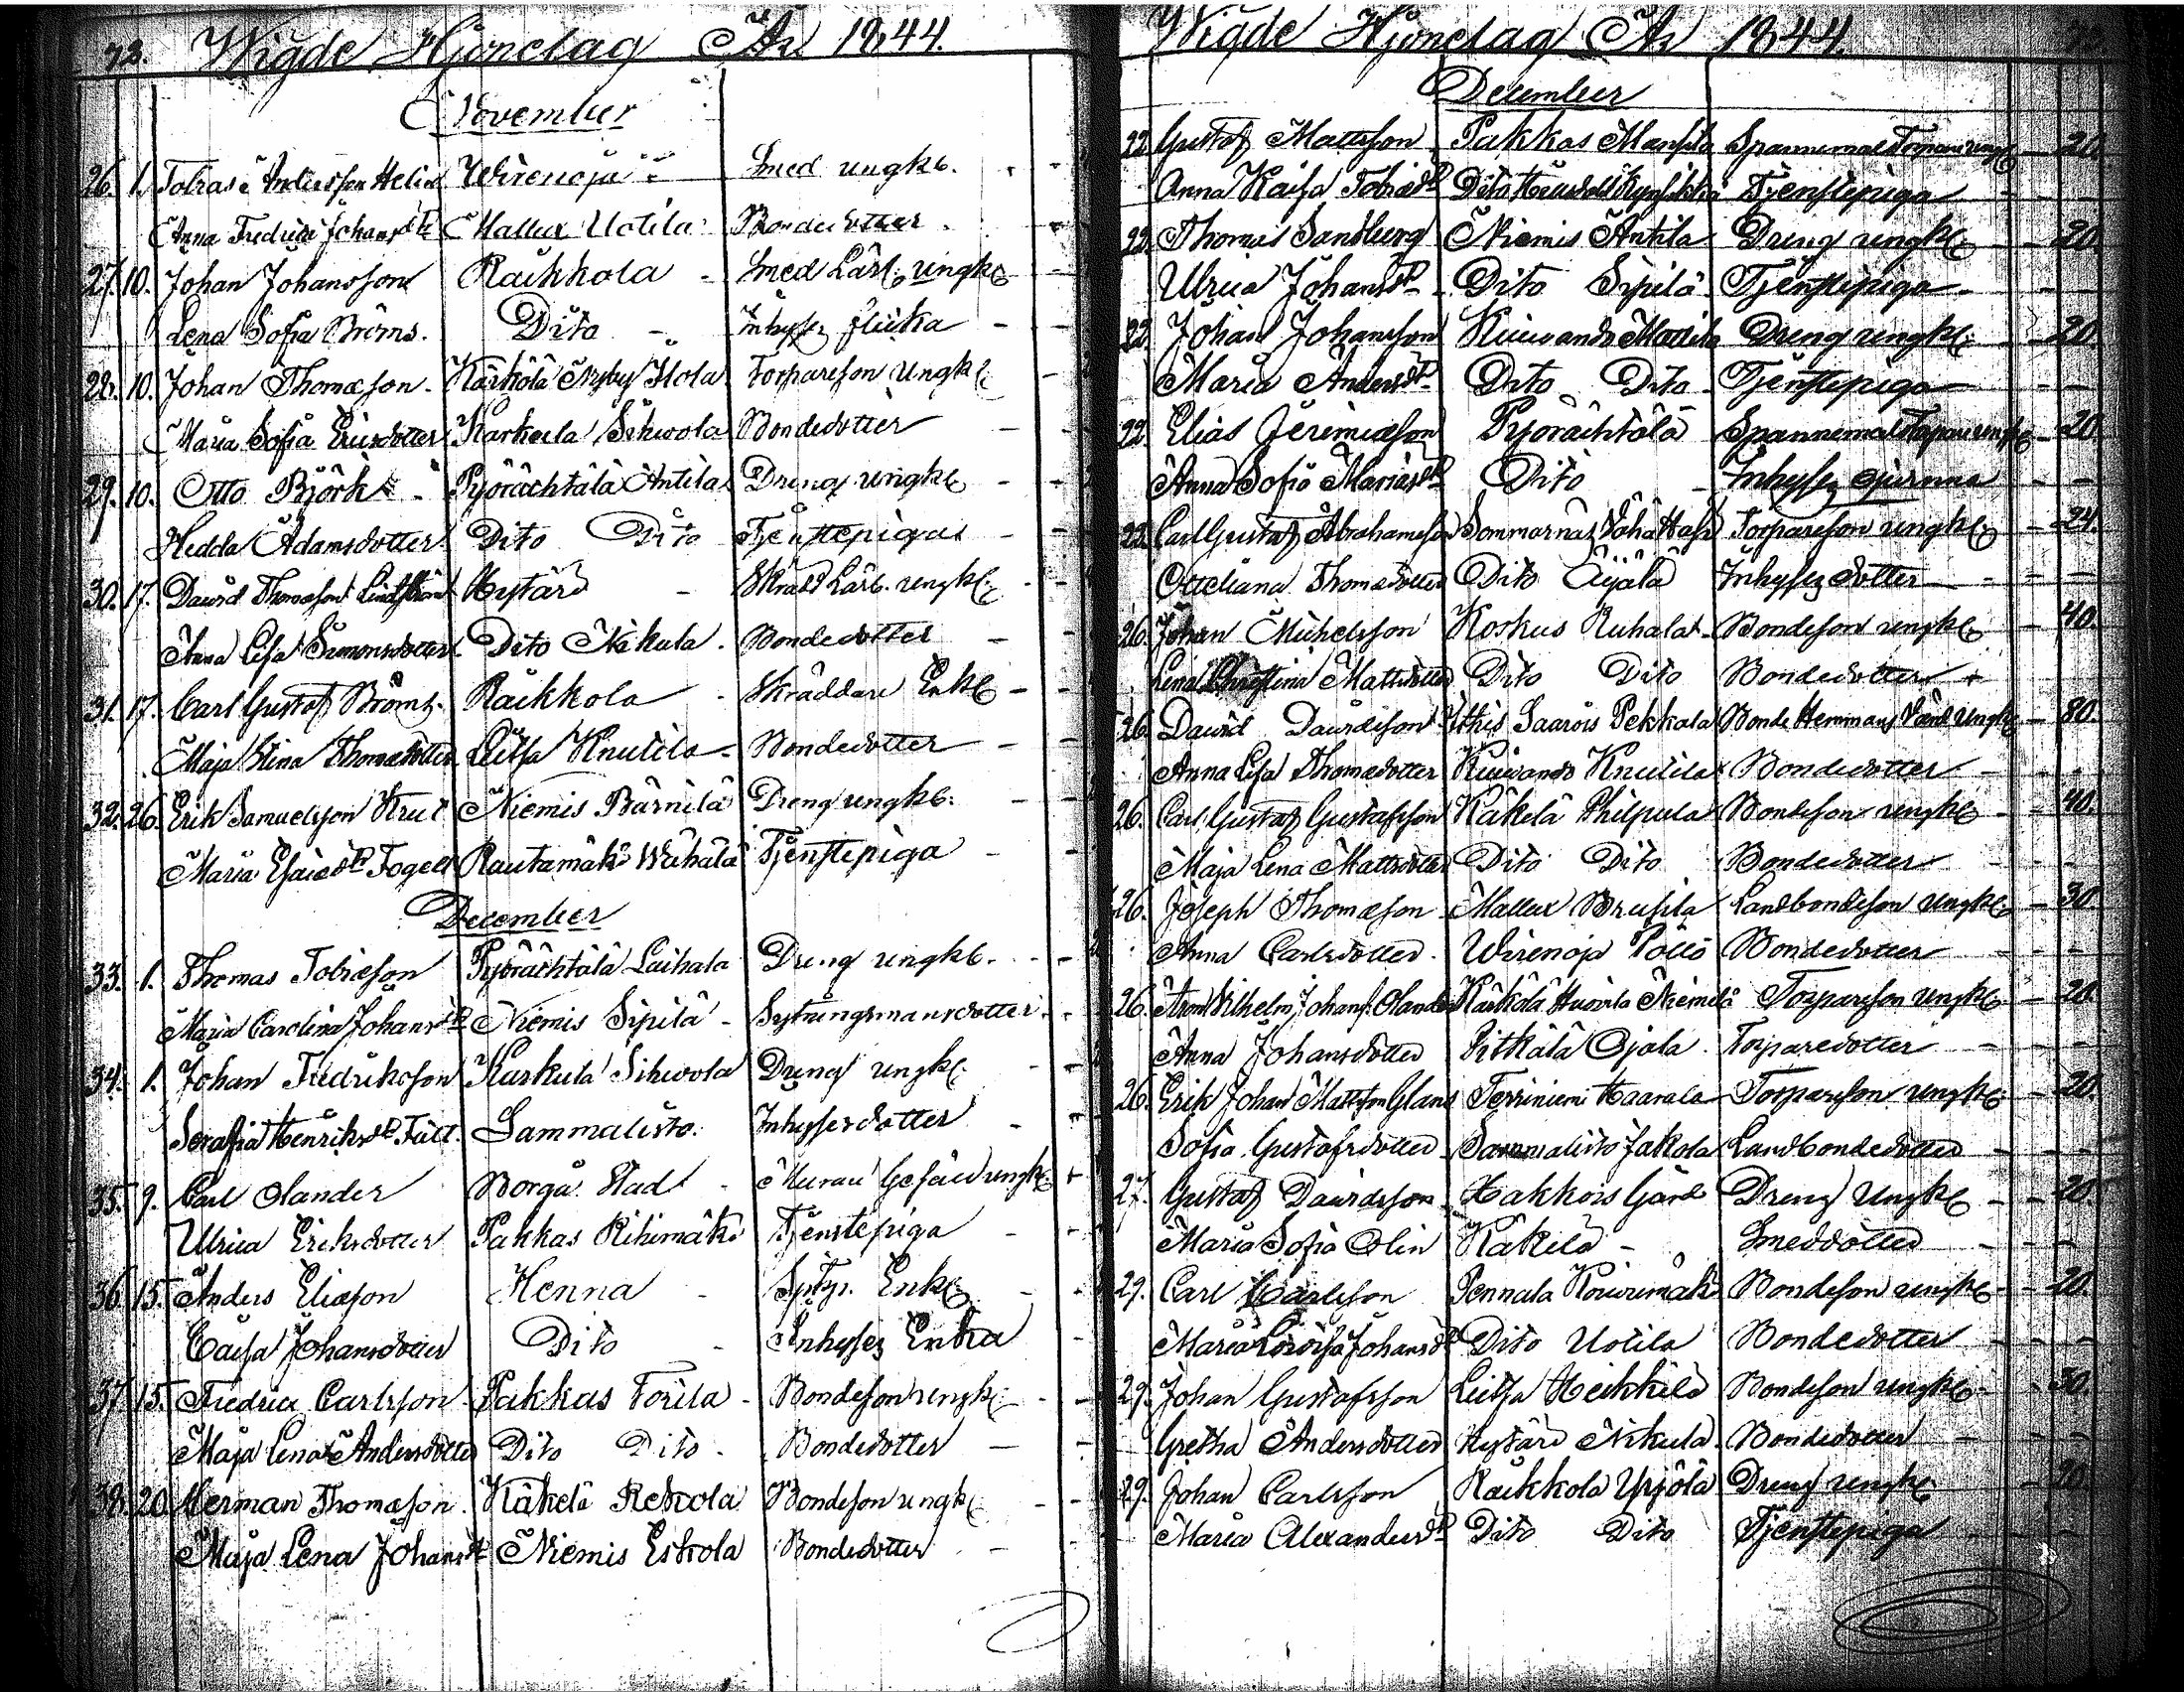 73. Wigde Hjonelag År 1844.
November
26. 1. Tobias Andersson Helin Wirenoja Smed ungkl.
Anna Fredrica Johansdr Mallux Uotila Bondedotter
27. 10. Johan Johansson Räikkola Smed Lärl. ungkl
Lena Sofia Bröms. Dito Inhyses flicka
28. 10. Johan Thomasson. Kärkölä Nyby Ilola Torpareson Ungkl
Maria Sofia Ericsdotter Karkeela Sihwola Bondedotter
29. 10. Otto Björk Pyörächtälä Antila Dreng ungkl
Hedda Adamsdotter Dito Dito Tjenstepiga
30. 17. David Thomasson Lindström Hystärö Skradd Lärl. ungkl.
Anna Lisa Simonsdotter Dito Nikula. Bondedotter
31. 17. Carl Gustaf Bröms. Räikkola Skräddare Enkl
Maja Stina Thomasdotter Luhta Knutila Bondedotter
32. 26. Erik Samuelsson Krut Niemis Bärnilä Dreng ungkl.
Maria Esaiedr Fogell Rautamäki Wähälä Tjenstepiga
December
33. 1. Thomas Tobiasson Pyörächtälä Laihala Dreng ungkl.
Maria Carolina Johansdr Niemis Sipilä Sytningsmansdotter
34. 1. Johan Fredriksson Karkula Sihwola Dreng ungkl.
Serafia Henriksdr Fält. Sammalisto. Inhysesdotter
35. 9. Carl Olander Borgå Stad Murari Gesäll ungkl
Ulrica Eriksdotter Pakkas Rihimäki Tjenstepiga
36. 15. Anders Eliasson Henna Enkl
Caisa Johansdotter Dito Inhyses Enka
37. 15. Fredric Carlsson Pakkas Torila Bondeson ungkl
Maja Lena Andersdotter Dito Dito Bondedotter
38. 20. Herman Thomasson. Käkelä Rekola Bondeson ungkl
Maja Lena Johansdr Niemis Eskola Bondedotter
Wigde Hjonelag År 1844.
December
22. Gustaf Mattsson Pakkas Manfila Spannemåls Torpare ungkl 20.
Anna Kaisa Tobiaedr Dito Tjenstepiga
22. Thomas Sandberg Niemis Antila Dreng ungkl 20.
Ulrica Johansdr Dito Sipilä Tjenstepiga
22. Johan Johansson Kuiwando Mattila Dreng ungkl. 20
Maria Andersdr Dito Dito Tjenstepiga
22. Elias Jeremiasson Pyörächtälä Spannemåls Torpare ungkl 20.
Anna Sofia Mariasdr Dito Inhyses
22. Carl Gustaf Abrahamsson Sommarnäs Torpareson ungkl 24.
Otteliana Thomasdotter Dito Äijälä Inhyses dotter
26. Johan Michelsson Koskus Ruhala Bondeson ungkl 40.
Lena Christina Mattsdotter Dito Dito Bondedotter
26. David Davidsson Ithis Saarois Pekkala Bonde Hemmans Värd Ungkl 80.
Anna Lisa Thomasdotter Kuiwando Knutila Bondedotter
26. Carl Gustaf Gustafsson Käkelä Philpula Bondeson ungkl 40.
Maja Lena Mattsdotter Dito Dito Bondedotter
26. Joseph Thomasson Mallux Brusila Landbondeson ungkl 30.
Anna Carlsdotter. Wirenoja Pöllö Bondedotter
26. Aron Wilhelm Johanss. Olander Kärkölä Huovila Niemelä Torpareson ungkl 20.
Anna Johansdotter Pitkälä Ojala. Torparedotter
26. Erik Johan Mattsson Glans Terriniemi Haavala Torpareson ungkl. 20.
Sofia Gustafsdotter Sammalisto Jakola Landbondedotter
27. Gustaf Davidsson Hakkois Gård Dreng Ungkl 20.
Maria Sofia Olin Käkelä Smeddotter
29. Carl Carlsson Pennala Koivumäki Bondeson ungkl 20.
Maria Lovisa Johansdr Dito Uotila Bondedotter
29. Johan Gustafsson Luhta Heikkilä Bondeson ungkl. 30.
Gretha Andersdotter Hystärö Nikula. Bondedotter
29. Johan Carlsson Räikkola Yrjölä Dreng ungkl 20
Maria Alexandersdr Dito Dito Tjenstepiga